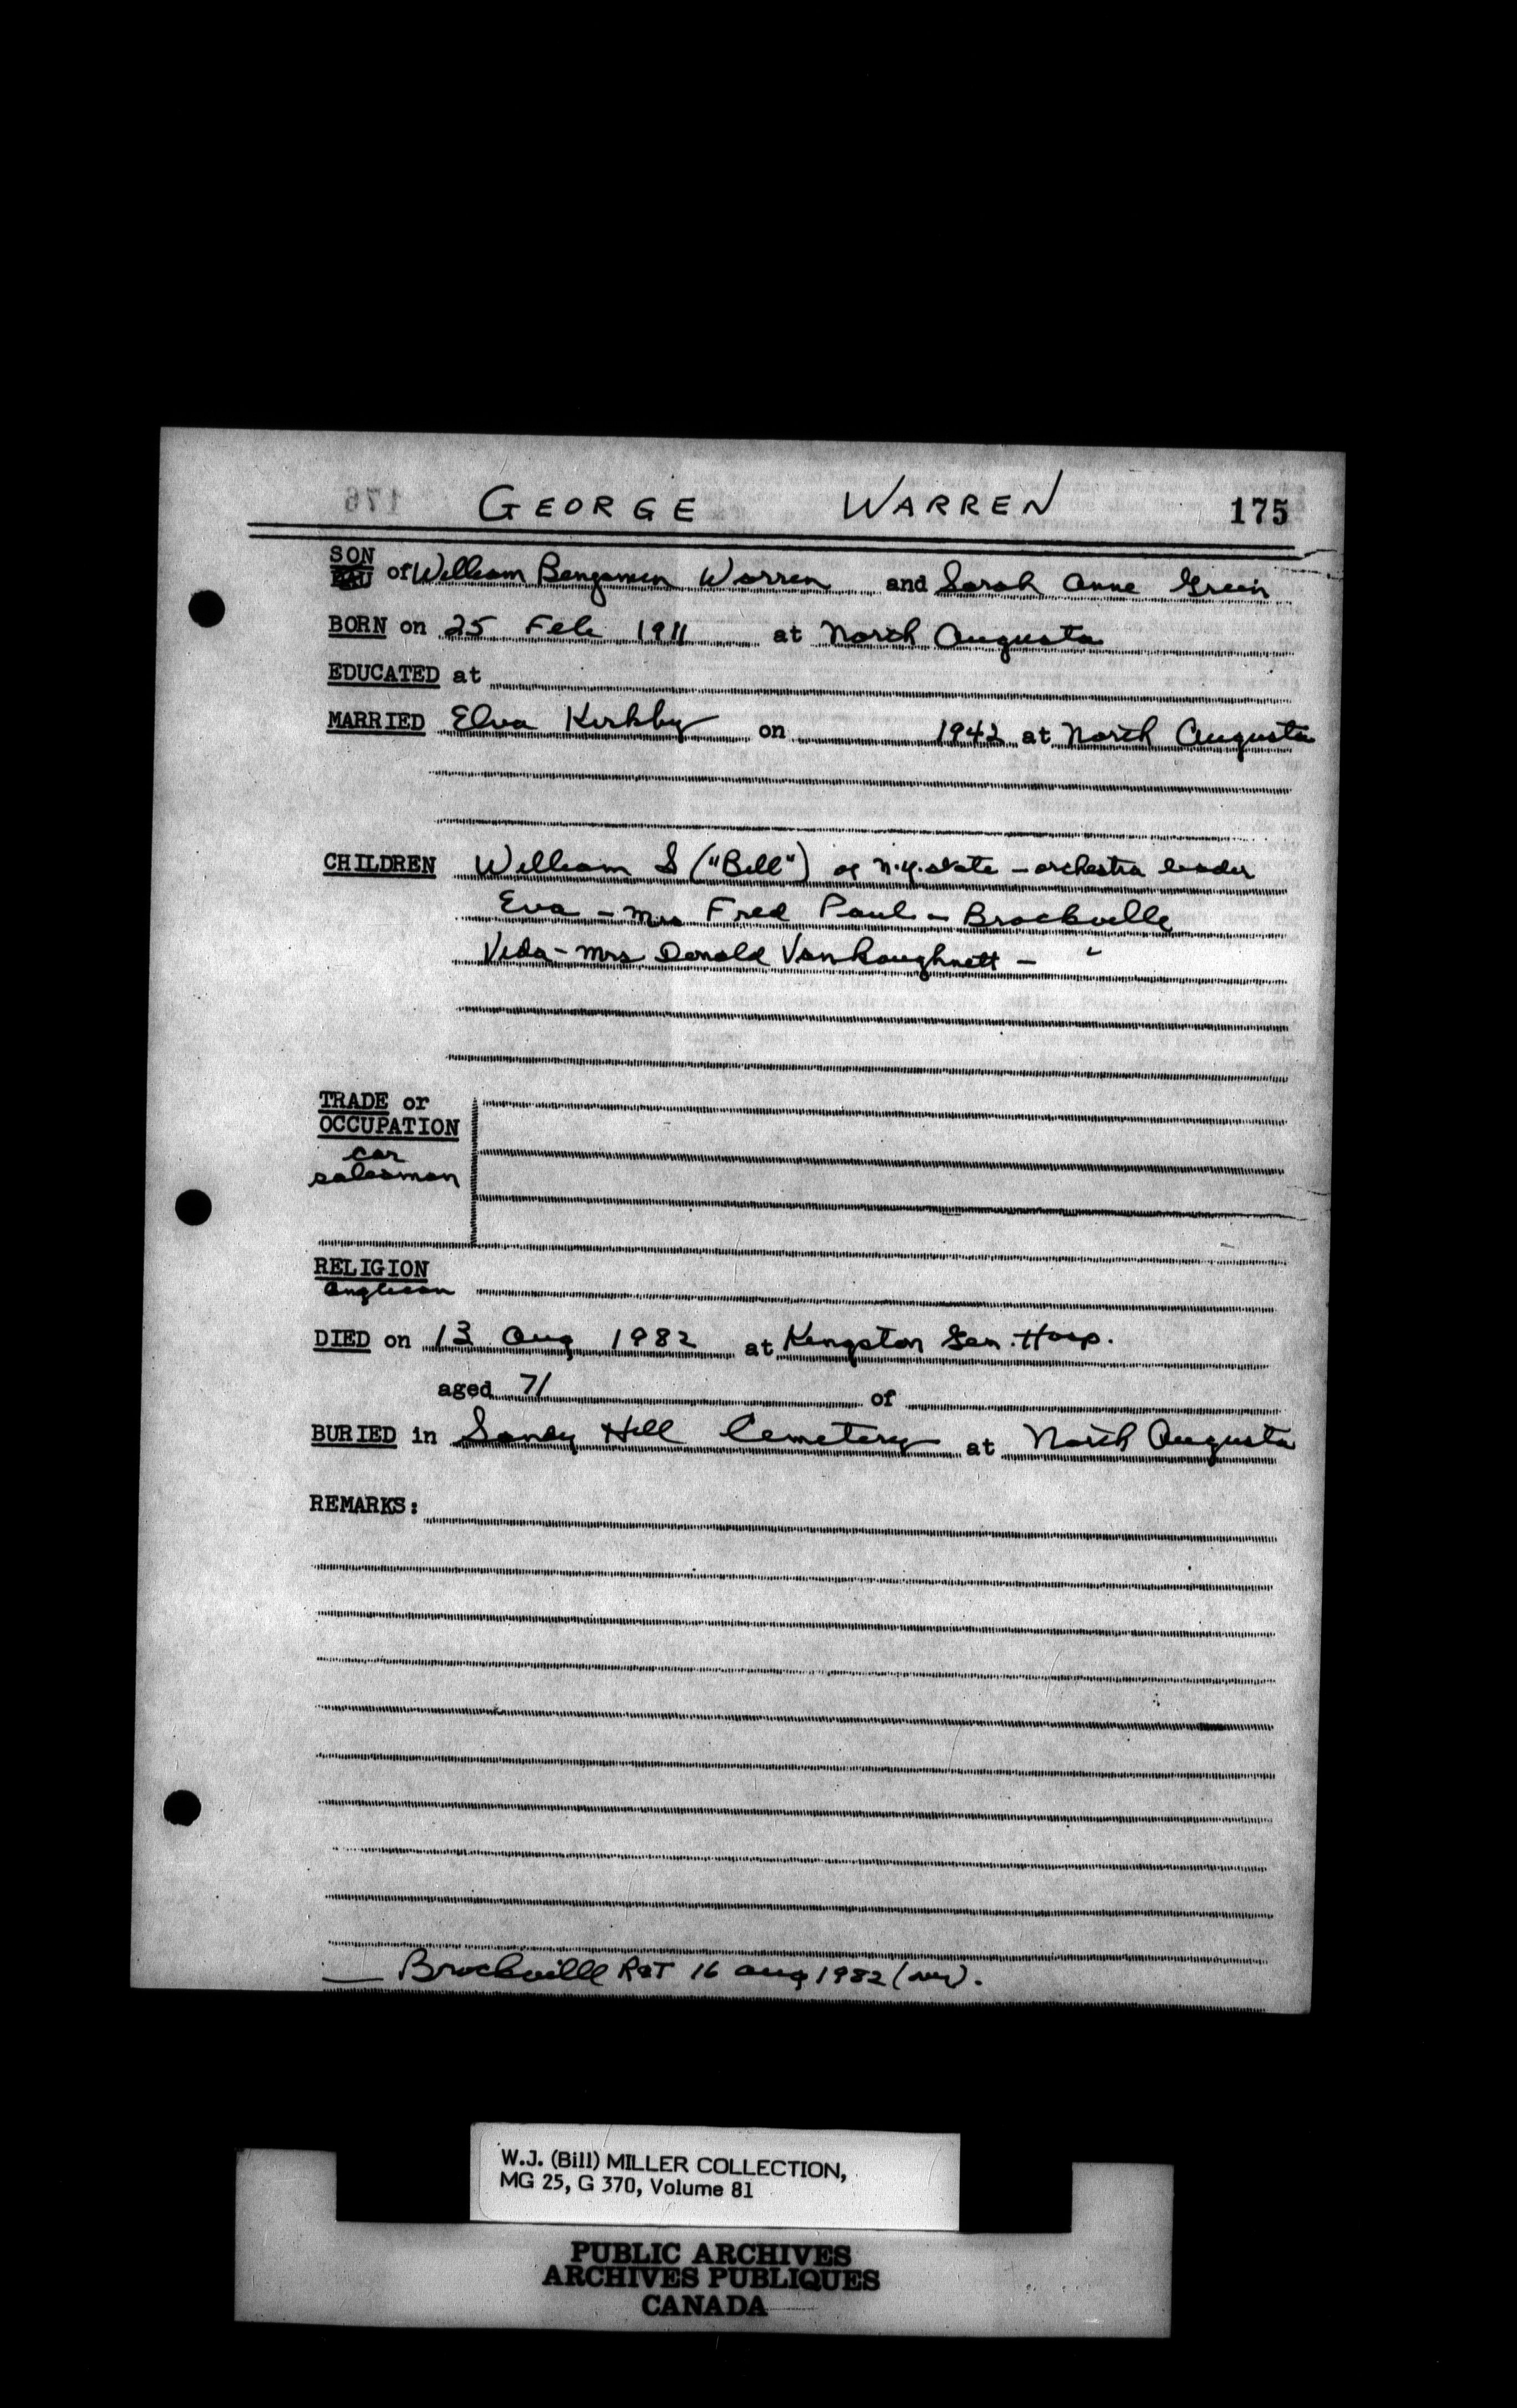 GEORGE WARREN 175
SON
DAU of William Benjamin Warren and Sarah Anne Green
BORN on 25 Feb 1911 at North Augusta
EDUCATED at
MARRIED Elva Kirkby on 1942 at North Augusta
CHILDREN William S ("Bill") of N.Y. State - orchestra leader
Eva - Mrs Fred Paul - Brockville
Veda - Mrs Donald VanKoughnett - "
TRADE or
OCCUPATION
car
salesman
RELIGION
Anglican
DIED on 13 Aug 1982 at Kingston Gen. Hosp.
aged 71 of
BURIED in Sandy Hill Cemetery at North Augusta
REMARKS:
Brockville R&T 16 Aug 1982
W.J. (Bill) MILLER COLLECTION,
MG 25, G 370, Volume 81
PUBLIC ARCHIVES
ARCHIVES PUBLIQUES
CANADA